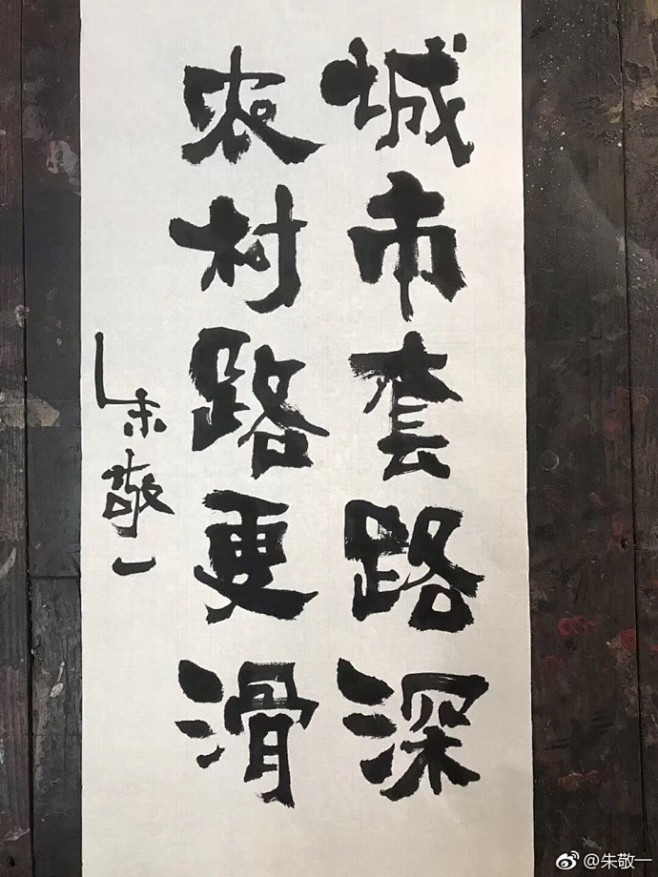 城市套路深
农村路更滑
朱敬一
@朱敬一